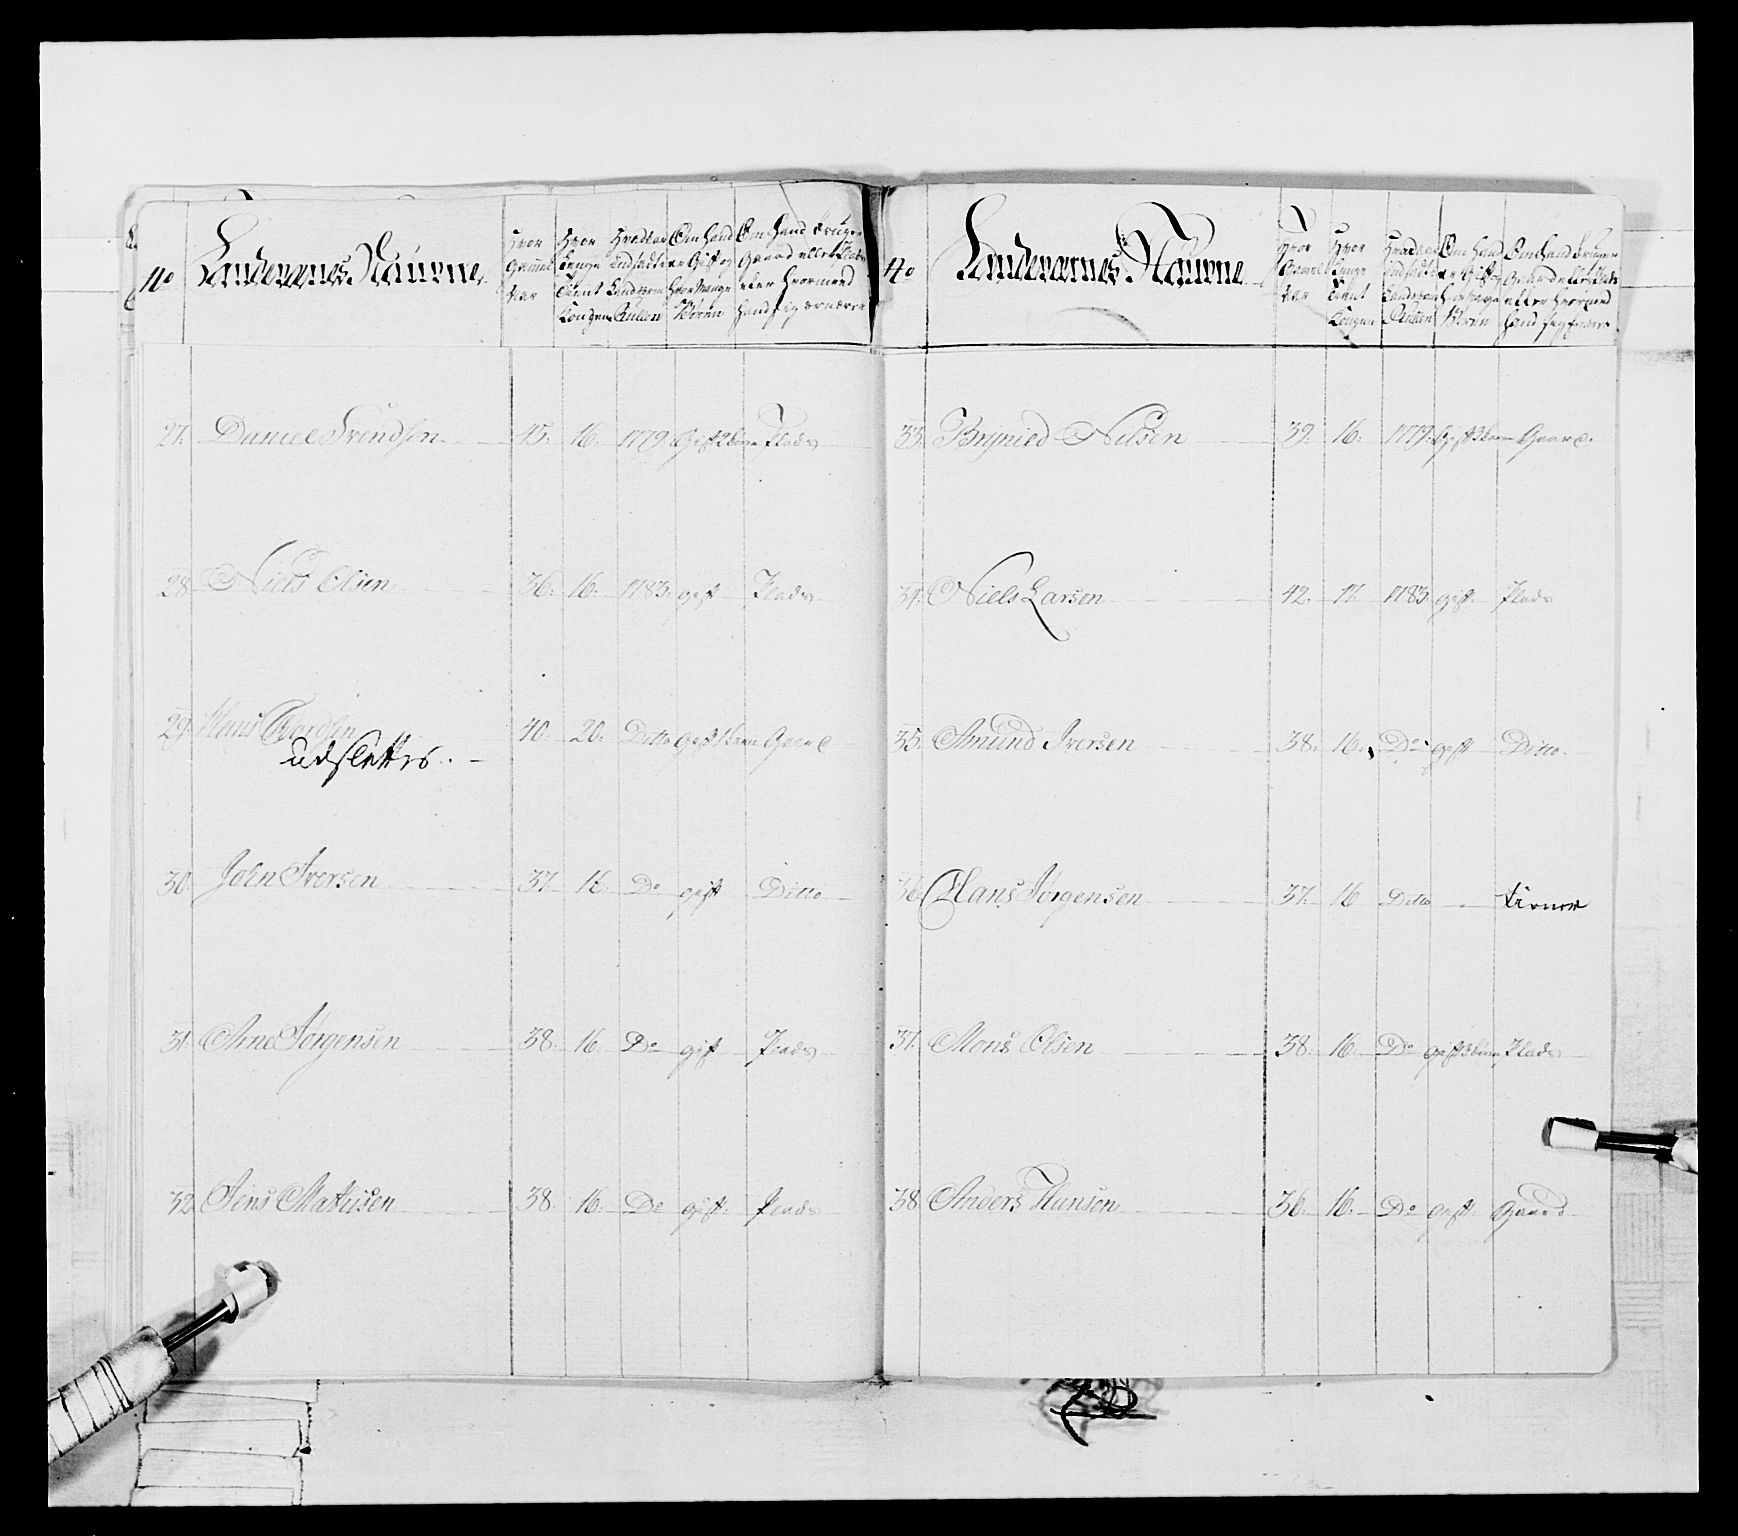 No Landeværnes Naufne. Hvor Gammel Aar Hvor Længe Tient Kongen Hvad Aar indsadt i Landværn Rullen Om Hand er Gift og Hvor Mange Børen Om Hand Bruger Gaard eller Plads eller Hvormed Hand sig ernærer
27. Daniel Svendsen 45. 16. 1779. Gift 2 børn Plads
28. Niels Olsen 36. 16. 1783. gift Plads
29. Hans
udslettes.
40. 20. Ditto Gift 1 børn Gaard
30. John Iversen 37. 16. Do gift Ditto
31. Arne Jørgensen 38. 16. Do gift Plads
32. Jens Mathisen 38. 16. Do gift. Plads
No Landeværnes Naufne Hvor Gammel Aar Hvor Længe Tient Kongen Hvad Aar indsadt i Landværn Rullen Om Hand er Gift og Hvor mange Børen Om Hand Bruger Gaard eller Plads eller Hvormed Hand sig
33. Brynied Nilsen 39. 16. 1779. Gift 3 børn Gaard.
34. Niels Larsen 42. 17. 1783 gift. Plads
35. Amund Iversen 38. 16. Do gift Ditto.
36. Hans Jørgensen 37. 16 Ditto tiener
37. Mons Olsen 38. 16. Do gift 3 børn Plads
38. Anders Hansen 36. 16. Do gift. Gaard